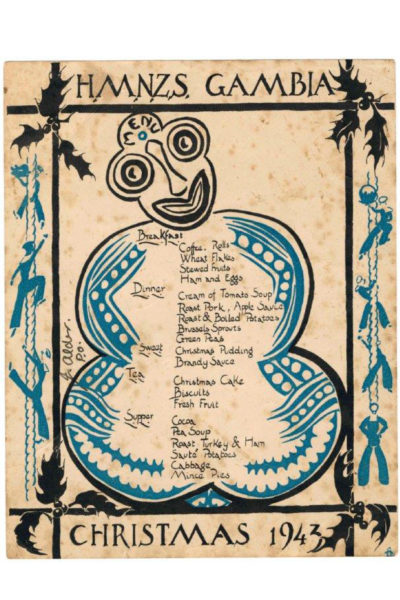 H.M.N.Z.S. GAMBIA
MENU
Breakfast
Coffee, Rolls
Wheat Flakes
Stewed Fruits
Ham and Eggs
Dinner
Cream of Tomato Soup
Roast Pork, Apple Sauce
Roast & Boiled Potatoes
Brussels Sprouts
Green Peas
Sweet
Christmas Pudding
Brandy Sauce
Tea
Christmas Cake
Biscuits
Fresh Fruit
Supper
Cocoa
Pea Soup
Roast Turkey & Ham
Sauté Potatoes
Cabbage
Mince Pies
P.O.
CHRISTMAS 1943